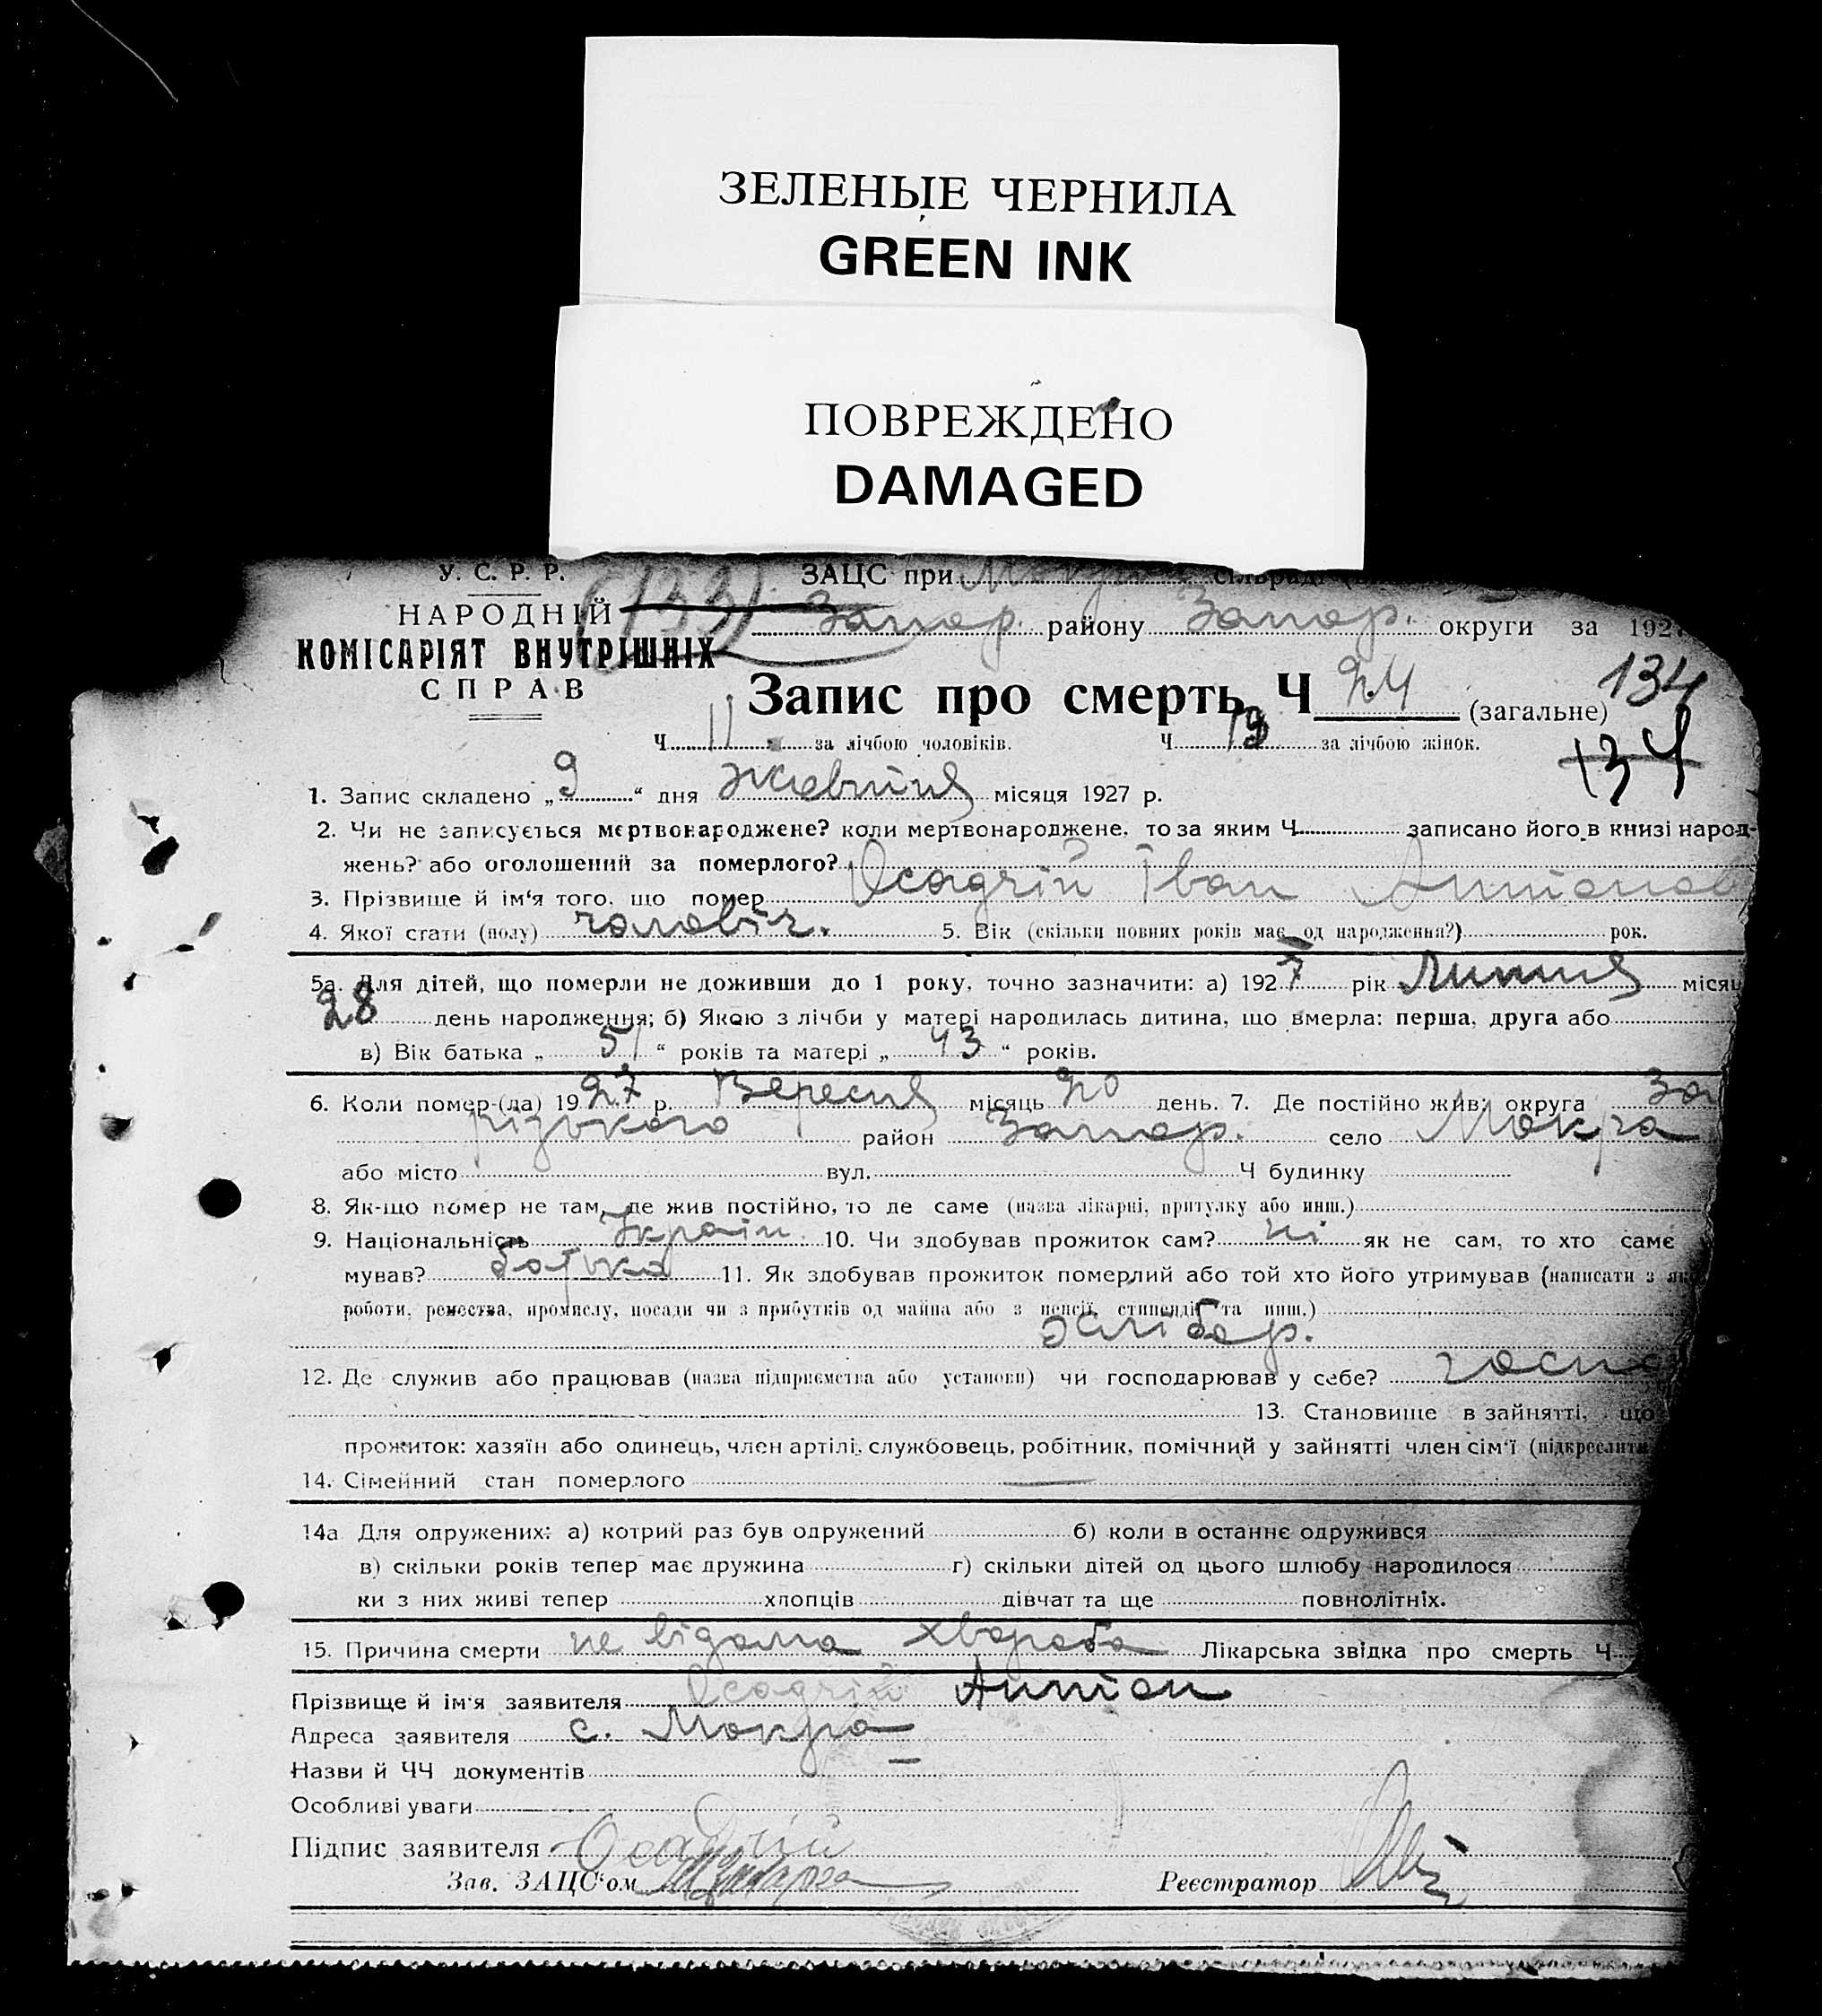 ЗЕЛЕНЫЕ ЧЕРНИЛА
GREEN INK
ПОВРЕЖДЕНО
DAMAGED
У. С. Р. Р.
ЗАЦС при сільраді
НАРОДНІЙ
(133)
Запор. району Запор. округи за 1927
КОМІСАРІЯТ ВНУТРІШНІХ
СПРАВ
Запис про смерть Ч 24 (загальне) 134
Ч 11 за лічбою чоловіків. Ч 13 за лічбою жінок.
134
1. Запис складено „ 9 “ дня жовтня місяця 1927 р.
2. Чи не записується мертвонароджене? коли мертвонароджене, то за яким Ч записано його в книзі народ-
жень? або оголошений за померлого?
3. Прізвище й ім‘я того, що помер Осадчій Іван Антонов
4. Якої стати (полу) чоловіч. 5. Вік (скільки повних років має од народження?) рок.
5а. Для дітей, що померли не доживши до 1 року, точно зазначити: а) 1927 рік Липня місяц
28 день народження; б) Якою з лічби у матері народилась дитина, що вмерла: перша, друга або
в) Вік батька „ 51 “ років та матері „ 43 “ років.
6. Коли помер-(ла) 1927 р. Вересня місяць 20 день. 7. Де постійно жив: округа За
різького район Запор. село Мокра
або місто вул. Ч будинку
8. Як-що помер не там, де жив постійно, то де саме (назва лікарні, притулку або инш.)
9. Національність Україн. 10. Чи здобував прожиток сам? ні як не сам, то хто саме
мував? батька 11. Як здобував прожиток померлий або той хто його утримував (написати з як
роботи, ремества, промислу, посади чи з прибутків од майна або з пенсії, стипендії та инш.)
хлібор.
12. Де служив або працював (назва підприємства або установи) чи господарював у себе? госпо
13. Становище в зайнятті, що
прожиток: хазяїн або одинець, член артілі, службовець, робітник, помічний у зайнятті член сім‘ї (підкреслити
14. Сімейний стан померлого —
14а Для одружених: а) котрий раз був одружений б) коли в останнє одружився
в) скільки років тепер має дружина г) скільки дітей од цього шлюбу народилося
ки з них живі тепер хлопців дівчат та ще повнолітніх.
15. Причина смерти не відома хвороба Лікарська звідка про смерть Ч
Прізвище й ім‘я заявителя Осадчій Антон
Адреса заявителя с. Мокра
Назви й ЧЧ документів —
Особливі уваги
Підпис заявителя Осадчій
Зав. ЗАЦС‘ом Реєстратор